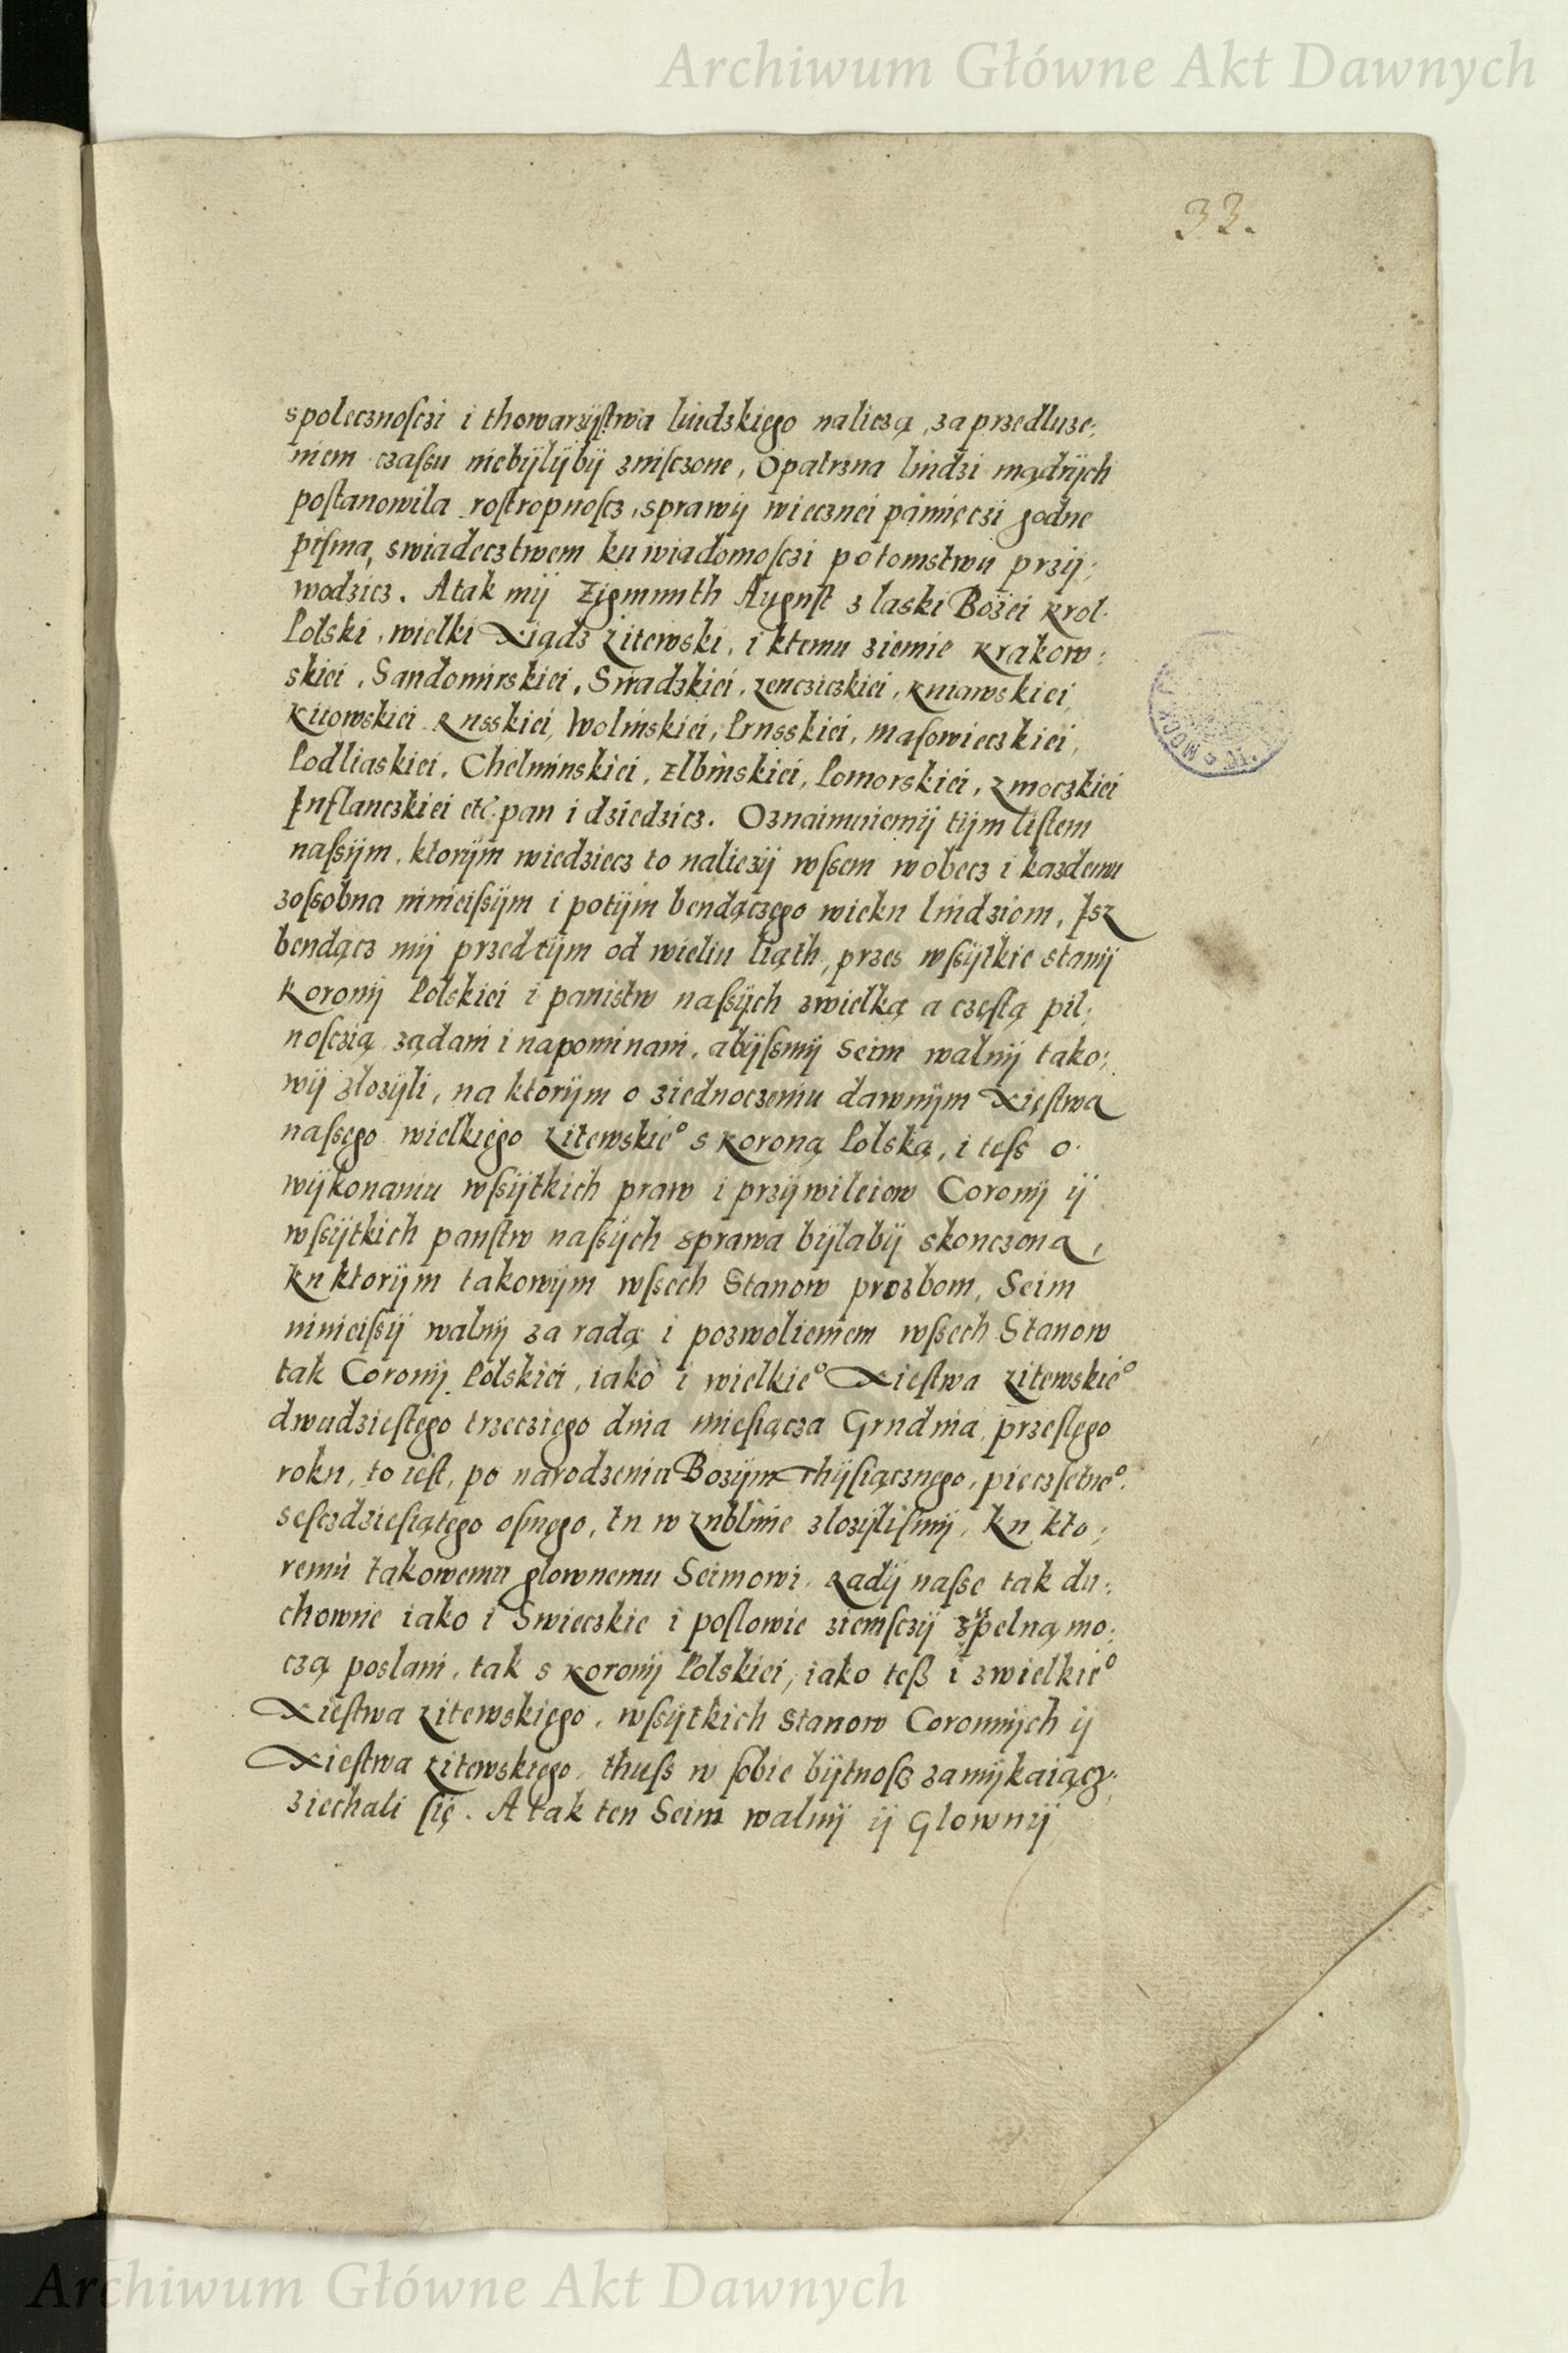 Archiwum Główne Akt Dawnych
33.
społecznoſczi i thowarzÿſtwa liudzkiego naliezą, za przedluze:
niem czaſsu niebÿlÿbÿ zniſczone, Opatrzna liudzi mądrÿch
poſtanowila roſtropnoſcz, sprawÿ wiecznei pamięczi godne
piſmą, swiadecztwem ku wiadomoſczi potomstwu przÿ:
wodzicz. A tak mÿ Zigmunth Auguſt z laski Bożei Krol
Polski, wielki Xiądz Litewski, i ktemu ziemie Krakow:
skiei, Sandomirskiei, Siradzkiei, Lencziczkiei, Kuiawskiei,
Kiiowskiei Russkiei, Wolinskiei, Prusskiei, Maſowieczkiei,
Podliaskiei, Chelminskiei, Elbinskiei, Pomorskiei, Zmoczkiei
Inflanczkiei etc. pan i dziedzicz. Oznaimuiemÿ tÿm liſtem
naſsÿm, ktorÿm wiedziecz to naliezÿ wſsem wobecz i kazdemu
zoſsobna ninieiſsÿm i potÿm bendączego wieku liudziom, Isz
bendącz mÿ przedtÿm od wieliu liąth, przes wſsÿtkie stanÿ
Koronÿ Polskiei i panistw naſsÿch zwielką a częſtą pil:
noſczią ządani i napominani, abÿſsmÿ Seim walnÿ tako:
wÿ złozÿli, na ktorÿm o ziednoczeniu dawnÿm Xięſtwa
naſsego wielkiego Litewskie° s Koroną Polską, i teſs o
wÿkonaniu wſsÿtkich praw i przÿwileiow Coronÿ ÿ
wſsÿtkich panſtw naſsÿch sprawa bÿlabÿ skonczona,
Ku ktorÿm takowÿm wſsech Stanow prozbom, Seim
ninieiſsÿ walnÿ za radą i pozwolieniem wſsech Stanow
tak Coronÿ Polskiei, iako i wielkie° Xieſtwa Litewskie°
dwudzieſtego trzecziego dnia mieſiącza Grudnia przeſlego
roku, to ieſt, po narodzeniu Bozÿm Thÿſiącznego, pięczſetne°
seſczdzieſiątego oſmego, tu w Lublinie zlozÿliſmÿ, Ku kto:
remu takowemu glownemu Seimowi, Radÿ naſse tak du:
chowne iako i Swieczkie i poſlowie ziemſczÿ zupelną mo:
czą poslani, tak s Koronÿ Polskiei, iako teß i zwielkie°
Xieſtwa Litewskiego, wſsÿtkich Stanow Coronnÿch ÿ
Xieſtwa Litewskiego, thuſs w ſobie bÿtnoſcz zamÿkaiącz,
ziechali ſię. A tak ten Seim walnÿ ÿ Glownÿ
Archiwum Główne Akt Dawnych